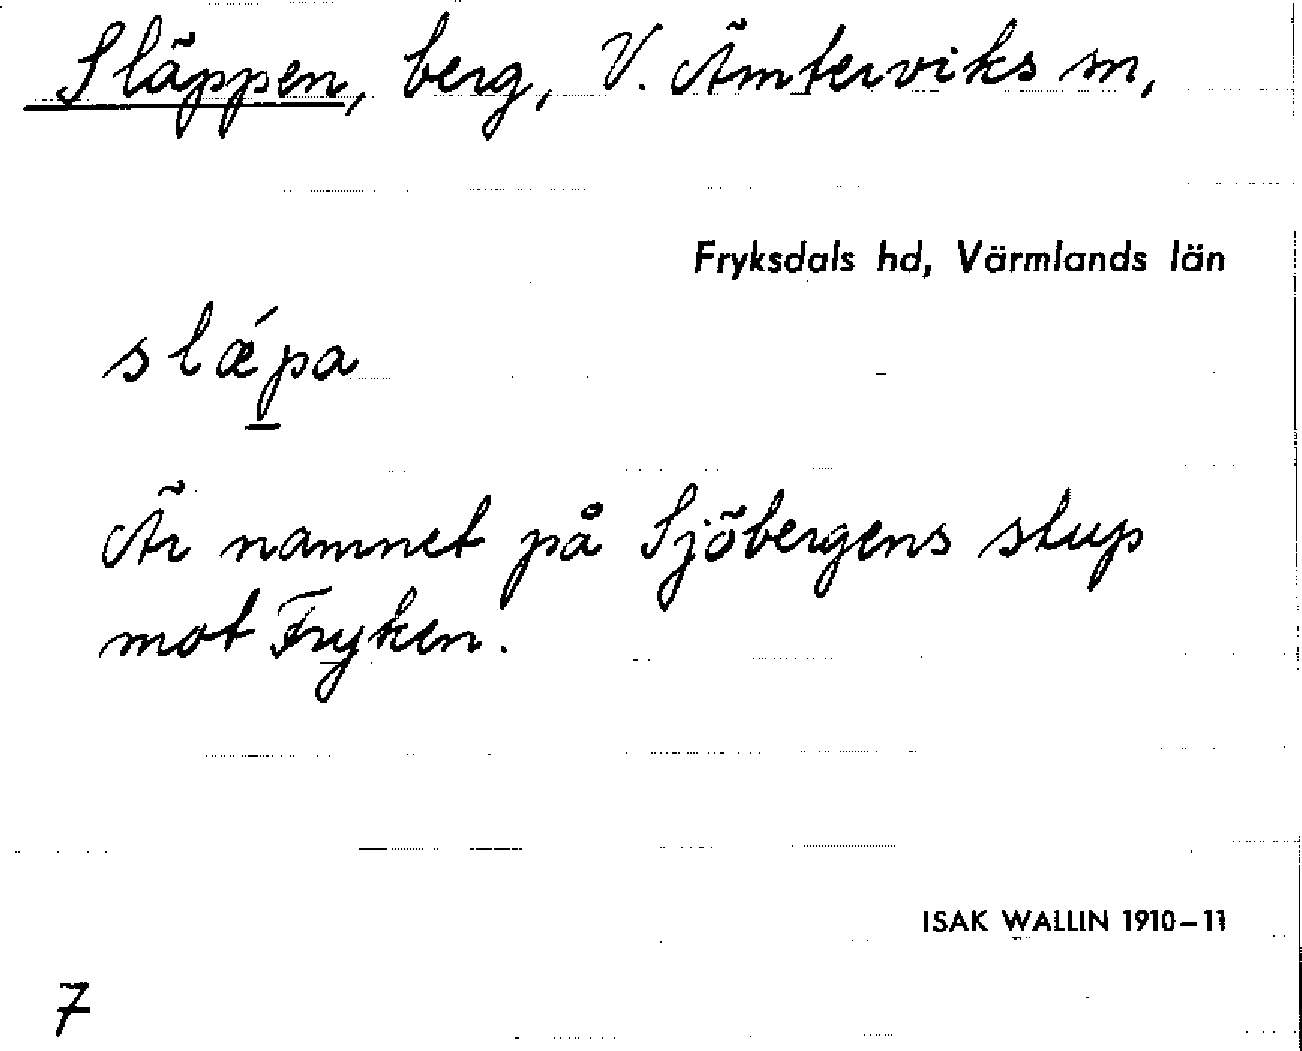 Släppen, berg, V. Ämterviks sn,
Fryksdals hd, Värmlands län
slǽpa
Är namnet på Sjöbergens stup
mot Fryken.
ISAK WALLIN 1910–11
7